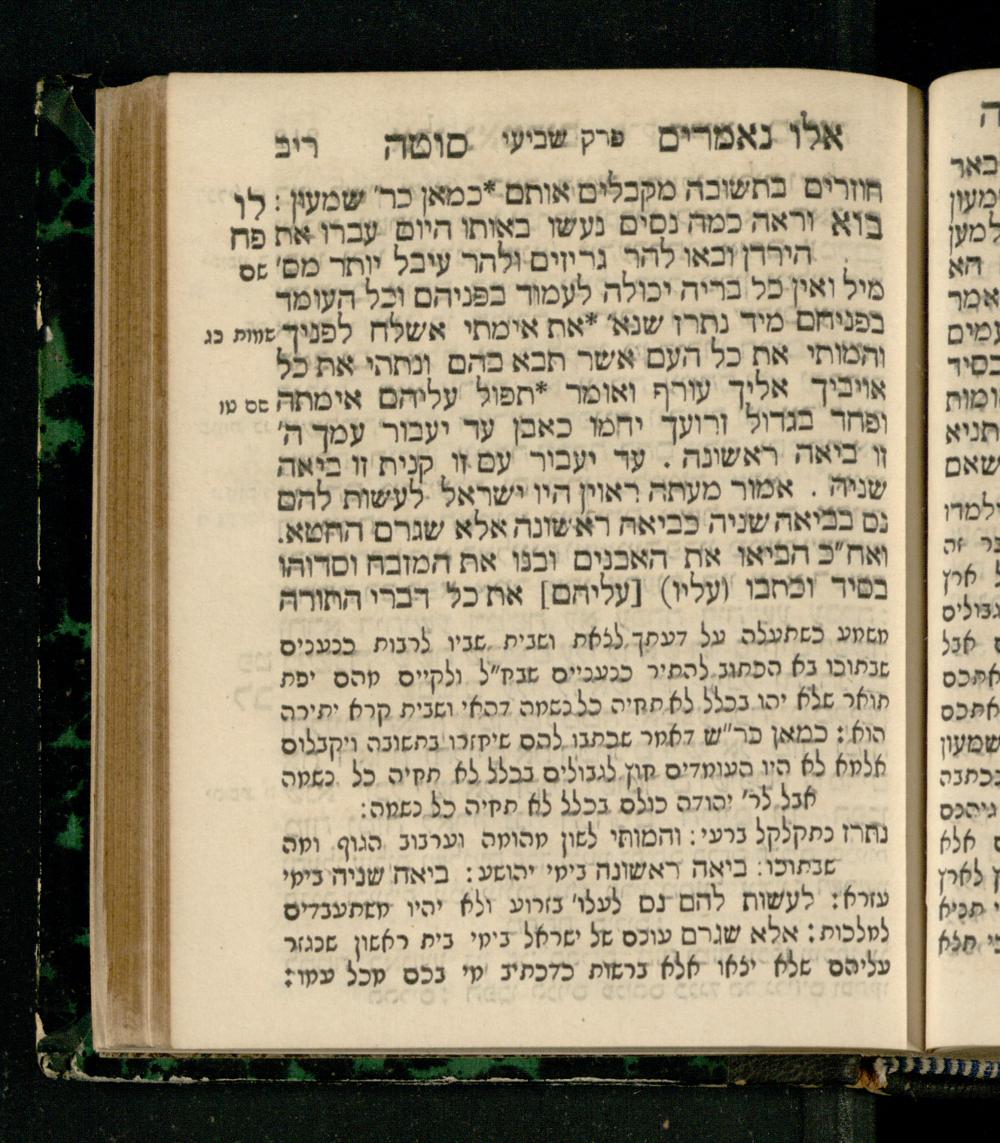 אלו נאמרים פרק שביעי סוטה ריב
חוזרים בתשובה מקבלים אותם *כמאן כר' שמעון : לו
בוא וראה כמה נסים נעשו באותו היום עברו את פח
הירדן ובאו להר גריזים ולהר עיבל יותר מס' שס
מיל ואין כל בריה יכולה לעמוד בפניהם וכל העומד
בפניהם מיד נתרז שנא' *את אימתי אשלח לפניך שמות כג
והמותי את כל העם אשר תבא בהם ונתתי את כל
אויביך אליך עורף ואומר *תפול עליהם אימתה שס טו
ופחד בגדול זרועך ידמו כאבן עד יעבור עמך ה'
זו ביאה ראשונה . עד יעבור עם זו קנית זו ביאה
שניה . אמור מעתה ראוין היו ישראל לעשות להם
נס בביאה שניה כביאה ראשונה אלא שגרם החטא.
ואח"כ הביאו את האבנים ובנו את המזבח וסדוהו
בסיד וכתבו (עליו) [עליהם] את כל דברי התורה
משמע כשתעלה על דעתך לצאת ושבית שביו לרבות כנענים
שבתוכו בא הכתוב להתיר כנעניים שבח"ל ולקיים מהם יפת
תואר שלא יהו בכלל לא תחיה כל נשמה דהאי ושבית קרא יתירה
הוא : כמאן כר"ש דאמר שכתבו להם שיחזרו בתשובה ויקבלום
אלמא לא היו העומדים חוץ לגבולים בכלל לא תחיה כל נשמה
אבל לר' יהודה כולם בכלל לא תחיה כל נשמה :
נתרז נתקלקל ברעי : והמותי לשון מהומה וערבוב הגוף ומה
שבתוכו : ביאה ראשונה בימי יהושע : ביאה שניה בימי
עזרא : לעשות להם נס לעלו' בזרוע ולא יהיו משתעבדים
למלכות : אלא שגרם עונם של ישראל בימי בית ראשון שנגזר
עליהם שלא יצאו אלא ברשות כדכתיב מי בכם מכל עמו :